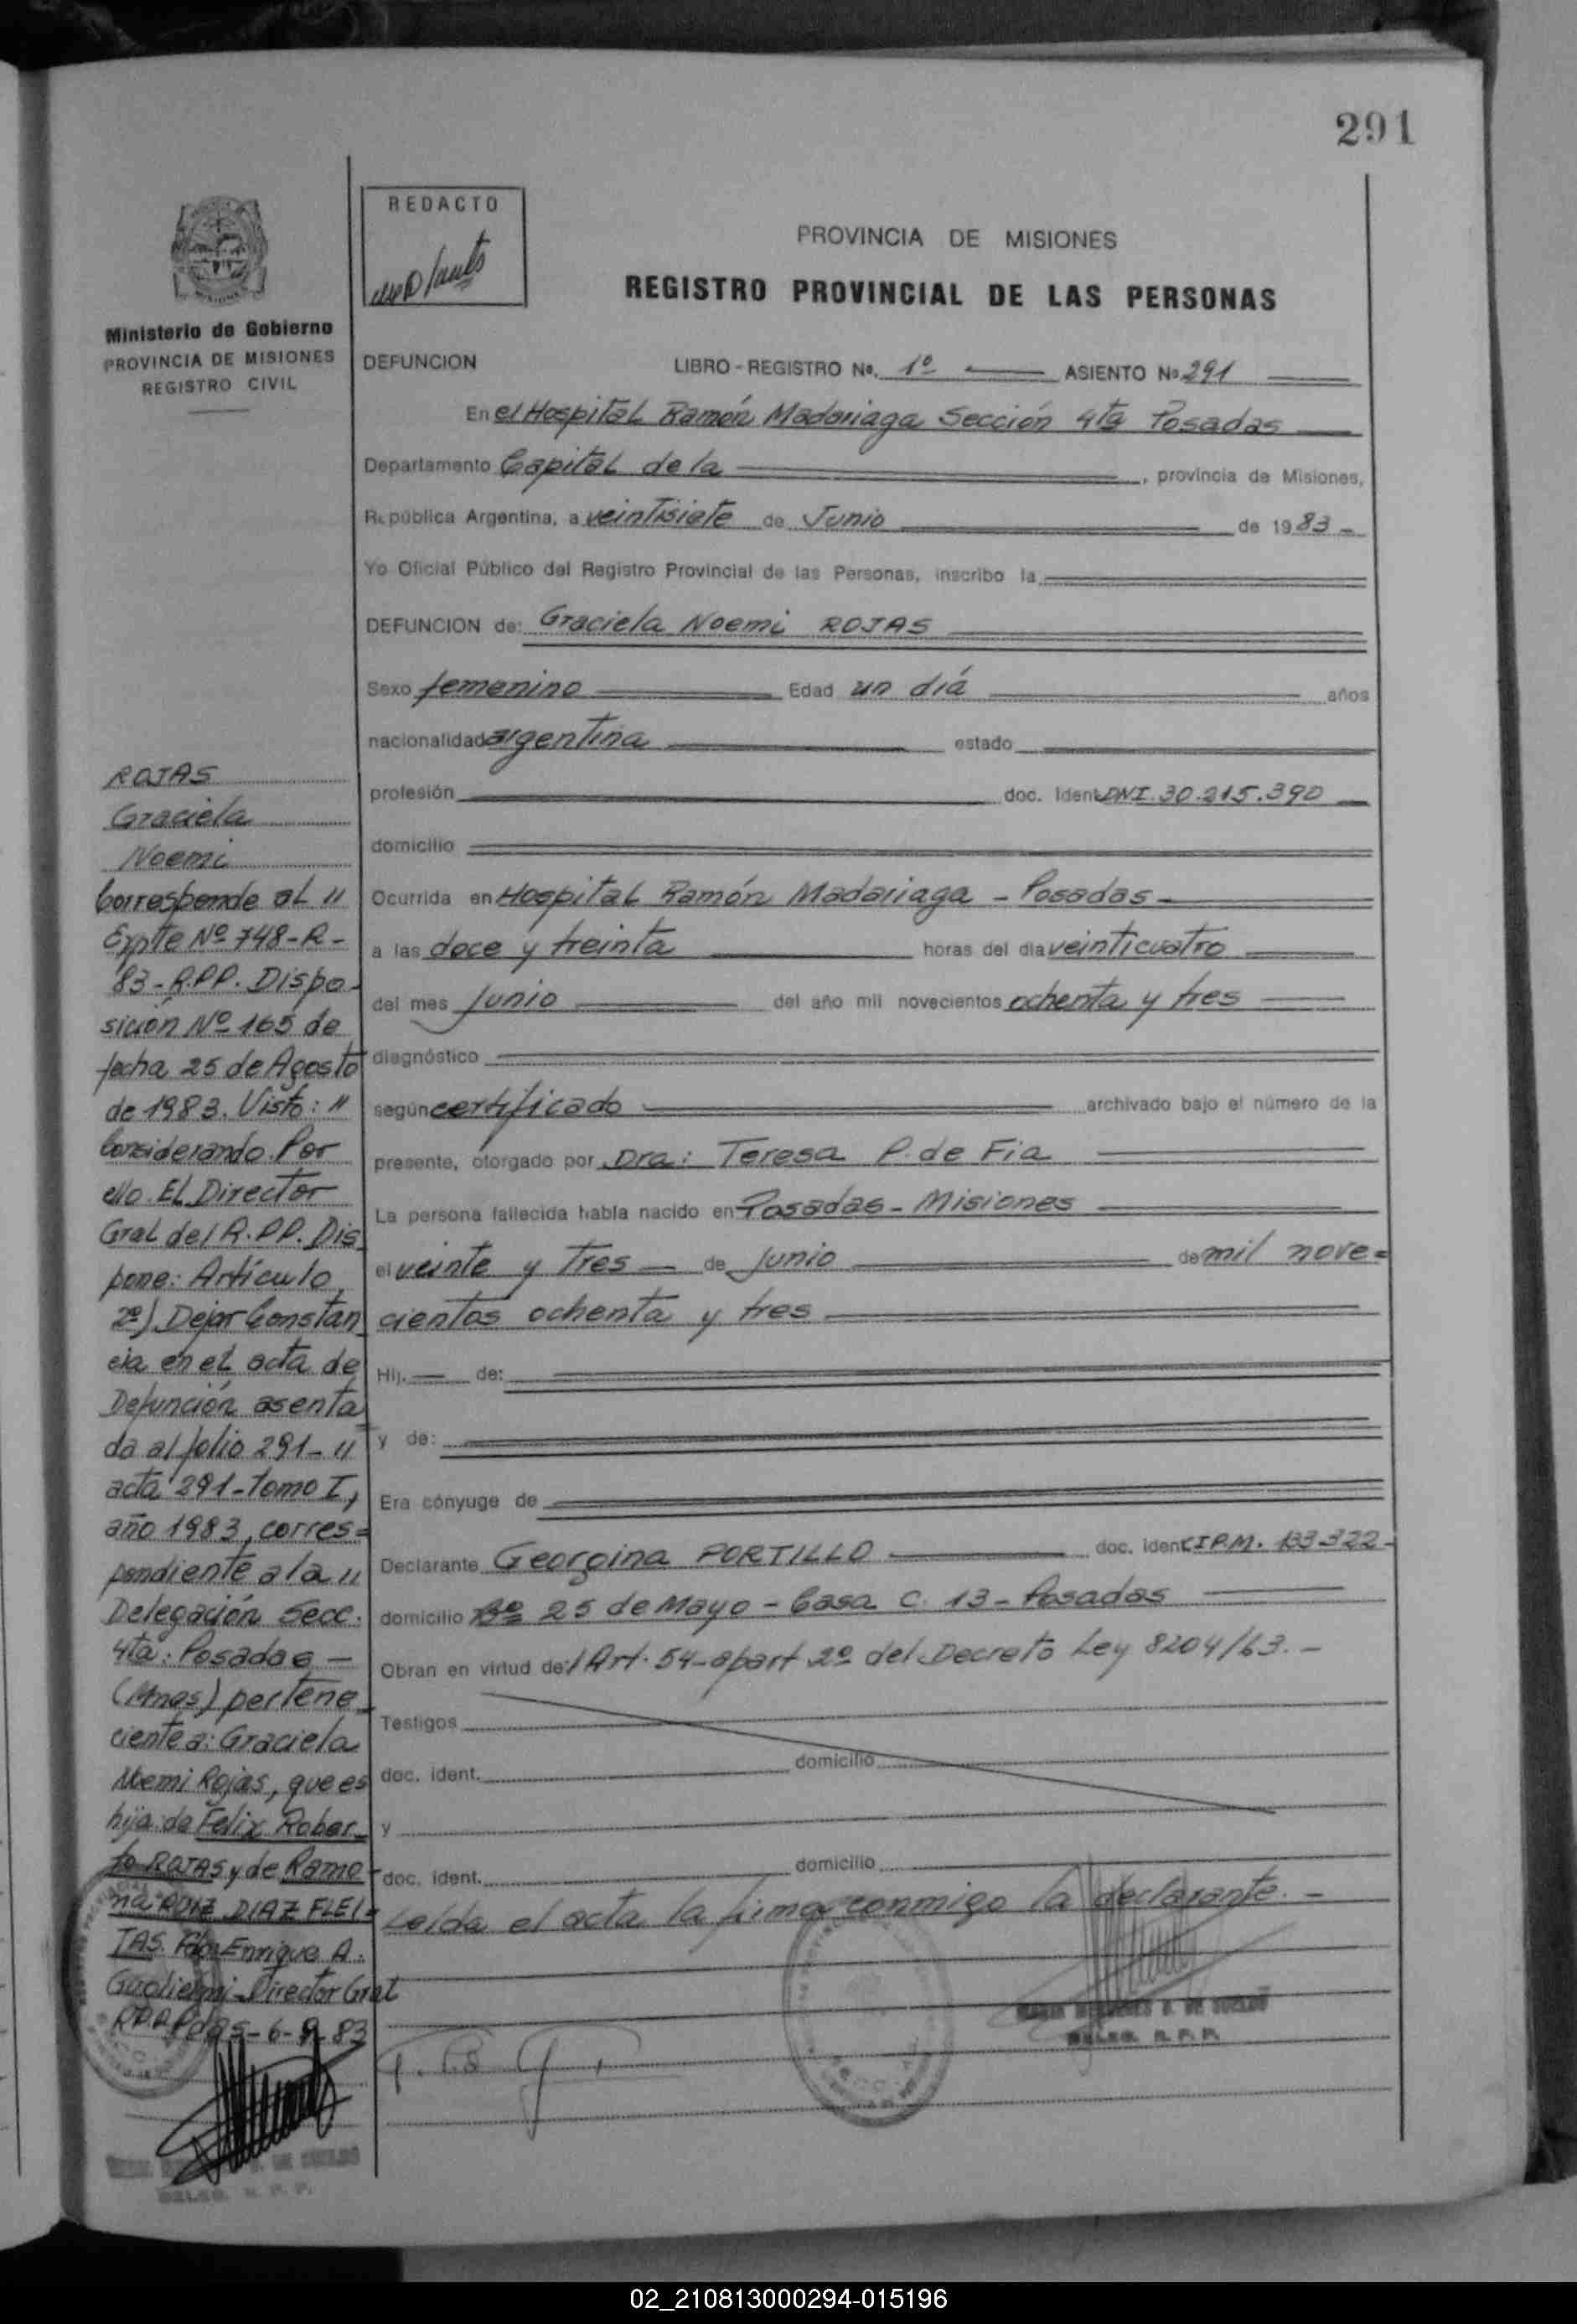 291
REDACTO
PROVINCIA DE MISIONES
REGISTRO PROVINCIAL DE LAS PERSONAS
Ministerio de Gobierno
PROVINCIA DE MISIONES
REGISTRO CIVIL
DEFUNCION LIBRO - REGISTRO No. 1º ASIENTO No 291
En el Hospital Ramón Madariaga Sección 4ta Posadas
Departamento Capital de la , provincia de Misiones,
República Argentina, a veintisiete de Junio de 1983 -
Yo Oficial Público del Registro Provincial de las Personas, inscribo la
DEFUNCION de: Graciela Noemi ROJAS
Sexo femenino Edad un día años
nacionalidad argentina estado
profesión doc. Ident. DNI. 30.215.390
domicilio
Ocurrida en Hospital Ramón Madariaga - Posadas -
a las doce y treinta horas del día veinticuatro
del mes Junio del año mil novecientos ochenta y tres
diagnóstico
según certificado archivado bajo el número de la
presente, otorgado por Dra: Teresa P. de Fia
La persona fallecida había nacido en Posadas - Misiones
el veinte y tres de Junio de mil nove=
cientos ochenta y tres
Hij. de:
y de:
Era cónyuge de
Declarante Georgina PORTILLO doc. ident. CIPM. 133322-
domicilio Bº 25 de Mayo - Casa C. 13 - Posadas
Obran en virtud del Art. 54-apart 2º del Decreto Ley 8204/63. -
Testigos
doc. ident. domicilio
y
doc. ident. domicilio
Leída el acta la firma conmigo la declarante. -
DELEG. R. P. P.
ROJAS
Graciela
Noemi
Corresponde al "
Expte Nº 748-R-
83-R.PP. Dispo-
sición Nº 165 de
fecha 25 de Agosto
de 1983. Visto: "
Considerando. Por
ello. El Director
Gral del R.PP. Dis
pone: Artículo
2º) Dejar Constan
cia en el acta de
Defunción asenta
da al folio 291- "
acta 291-Tomo I,
año 1983, corres=
pondiente a la "
Delegación Secc.
4ta: Posadas -
(Mnes) pertene_
ciente a: Graciela
Noemi Rojas, que es
hija de Felix Rober_
to ROJAS y de Ramo-
na DIAZ FLEI=
TAS. Enrique A.
Guglielmi-Director Gral
R.P.P. Pdas-6-9-83
DELEG. R. P. P.
02_210813000294-015196